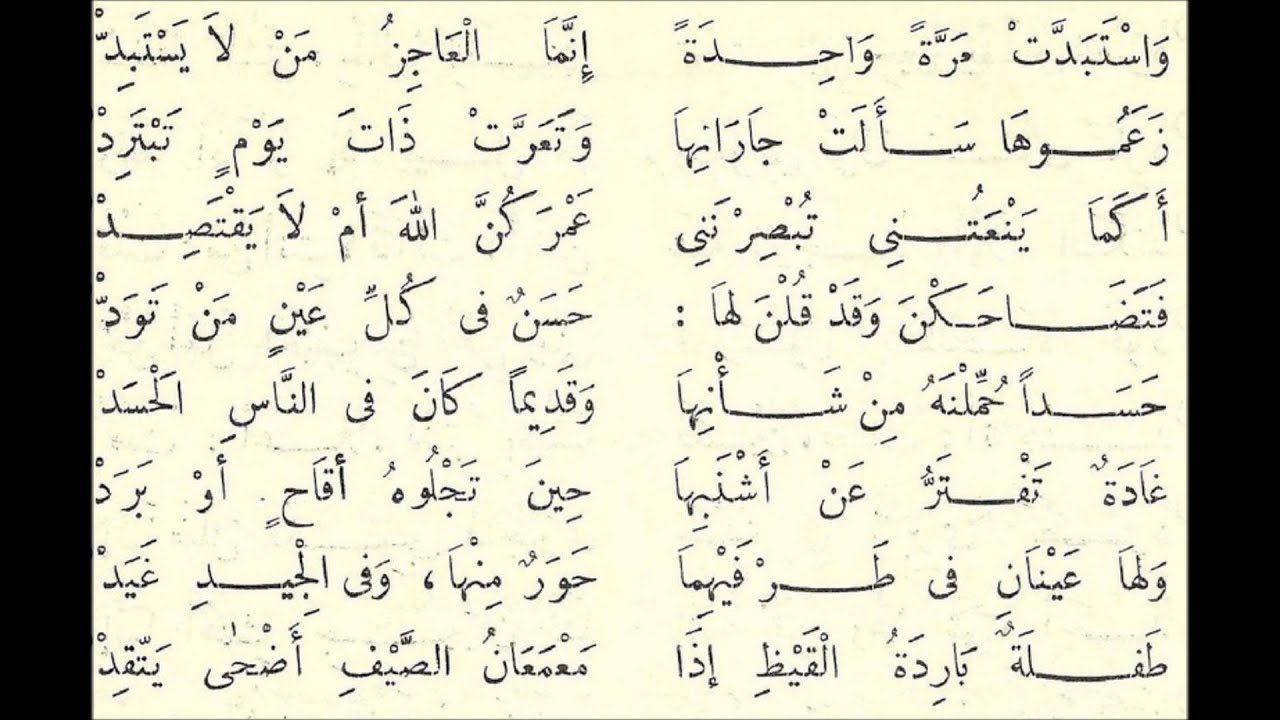 وَاسْتَبَدَّتْ مَرَّةً وَاحِـــدَةً إِنَّمَا الْعَاجِزُ مَنْ لَا يَسْتَبِدّْ
زَعَمُــوهَا سَــأَلَتْ جَارَاتِهَا وَتَعَرَّتْ ذَاتَ يَوْمٍ تَبْتَرِدْ
أَكَمَا يَنْعَتُـــنِى تُبْصِرْنَنِى عَمْرَكُنَّ اللهَ أَمْ لَا يَقْتَصِـدْ
فَتَضَــاحَكْنَ وَقَدْ قُلْنَ لَهَا : حَسَنٌ فى كُلِّ عَيْنٍ مَنْ تَوَدّْ
حَسَــداً حُمِّلْنَهُ مِنْ شَــأْنِهَا وَقَدِيماً كَانَ فى النَّاسِ الْحَسَدْ
غَادَةٌ تَفْــتَرُّ عَنْ أَشْنَبِهَا حِينَ تَجْلُوهُ أَقَاحٍ أَوْ بَرَدْ
وَلَهَا عَيْنَانِ فى طَــرْفَيْهِمَا حَوَرٌ مِنْهَا، وَفى الْجِيــدِ غَيَدْ
طَفــلَةٌ بَارِدَةُ الْقَيْظِ إِذَا مَعْمَعَانُ الصَّيْفِ أَضْحَى يَتَّقِدْ